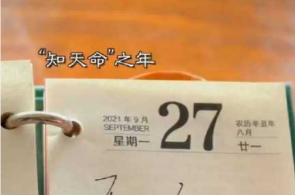 “知天命”之年
2021年9月
SEPTEMBER
星期一
27
农历辛丑年
八月
廿一